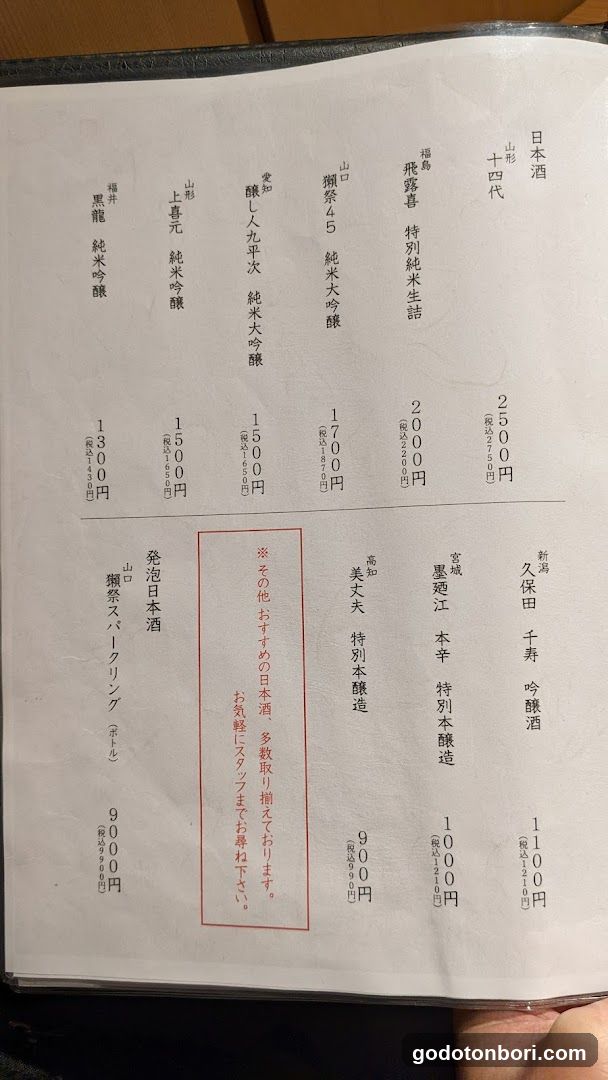 日本酒
山形
十四代
2500円
（税込2750円）
福島
飛露喜 特別純米生詰
2000円
（税込2200円）
山口
獺祭45 純米大吟醸
1700円
（税込1870円）
愛知
醸し人九平次 純米大吟醸
1500円
（税込1650円）
山形
上喜元 純米吟醸
1500円
（税込1650円）
福井
黒龍 純米吟醸
1300円
（税込1430円）
新潟
久保田 千寿 吟醸酒
1100円
（税込1210円）
宮城
墨廼江 本辛 特別本醸造
1000円
（税込1210円）
高知
美丈夫 特別本醸造
900円
（税込990円）
※その他 おすすめの日本酒、多数取り揃えております。
お気軽にスタッフまでお尋ね下さい。
発泡日本酒
山口
獺祭スパークリング （ボトル）
9000円
（税込9900円）
godotonbori.com